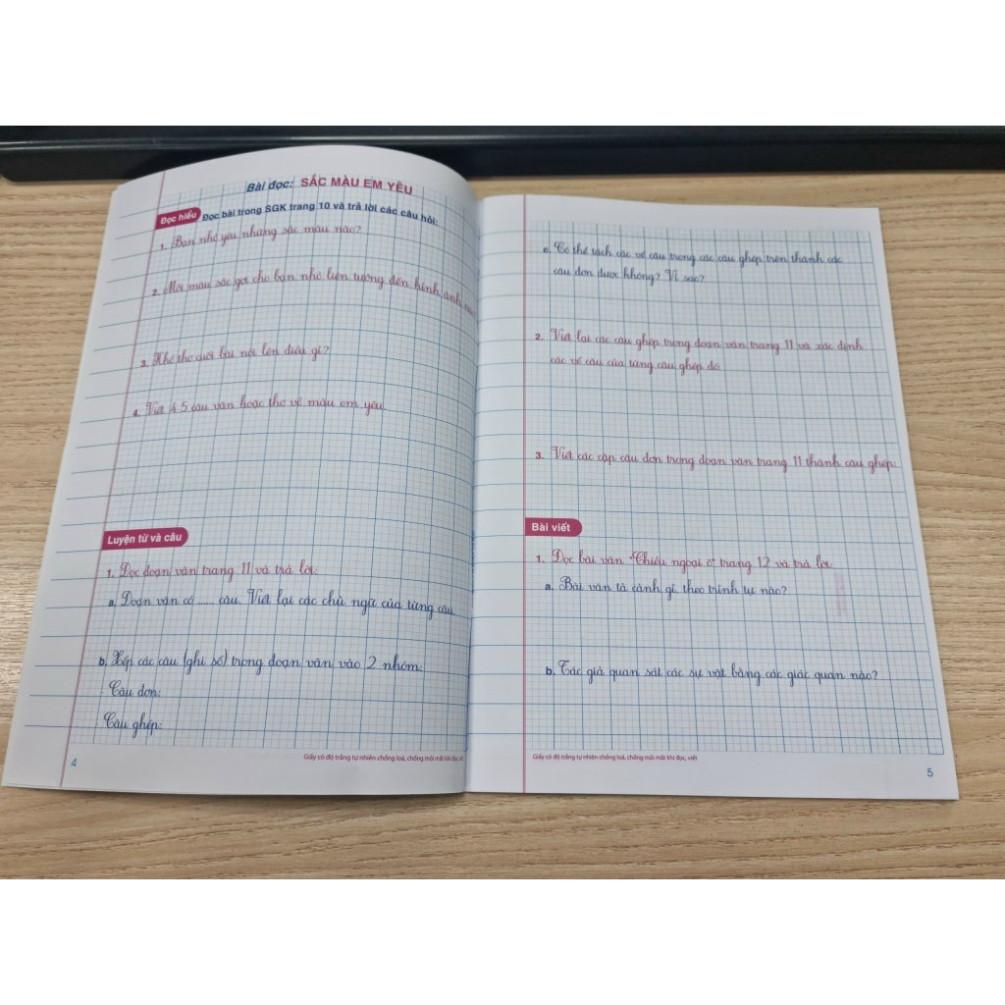 Bài đọc: SẮC MÀU EM YÊU
Đọc hiểu Đọc bài trong SGK trang 10 và trả lời các câu hỏi:
1. Bạn nhỏ yêu những sắc màu nào?
2. Mỗi màu sắc gợi cho bạn nhỏ liên tưởng đến hình ảnh
3. Khổ thơ cuối bài nói lên điều gì?
4. Viết 4-5 câu văn hoặc thơ về màu em yêu.
Luyện từ và câu
1. Đọc đoạn văn trang 11 và trả lời:
a. Đoạn văn có ...... câu. Viết lại các chủ ngữ của từng câu
b. Xếp các câu (ghi số) trong đoạn văn vào 2 nhóm:
Câu đơn:
Câu ghép:
Giấy có độ trắng tự nhiên chống loá, chống mỏi mắt khi đọc,
4
c. Có thể tách các vế câu trong các câu ghép trên thành các
câu đơn được không? Vì sao?
2. Viết lại các câu ghép trong đoạn văn trang 11 và xác định
các vế câu của từng câu ghép đó.
3. Viết các cặp câu đơn trong đoạn văn trang 11 thành câu ghép:
Bài viết
1. Đọc bài văn "Chiều ngoại ô" trang 12 và trả lời:
a. Bài văn tả cảnh gì, theo trình tự nào?
b. Tác giả quan sát các sự vật bằng các giác quan nào?
Giấy có độ trắng tự nhiên chống loá, chống mỏi mắt khi đọc, viết
5